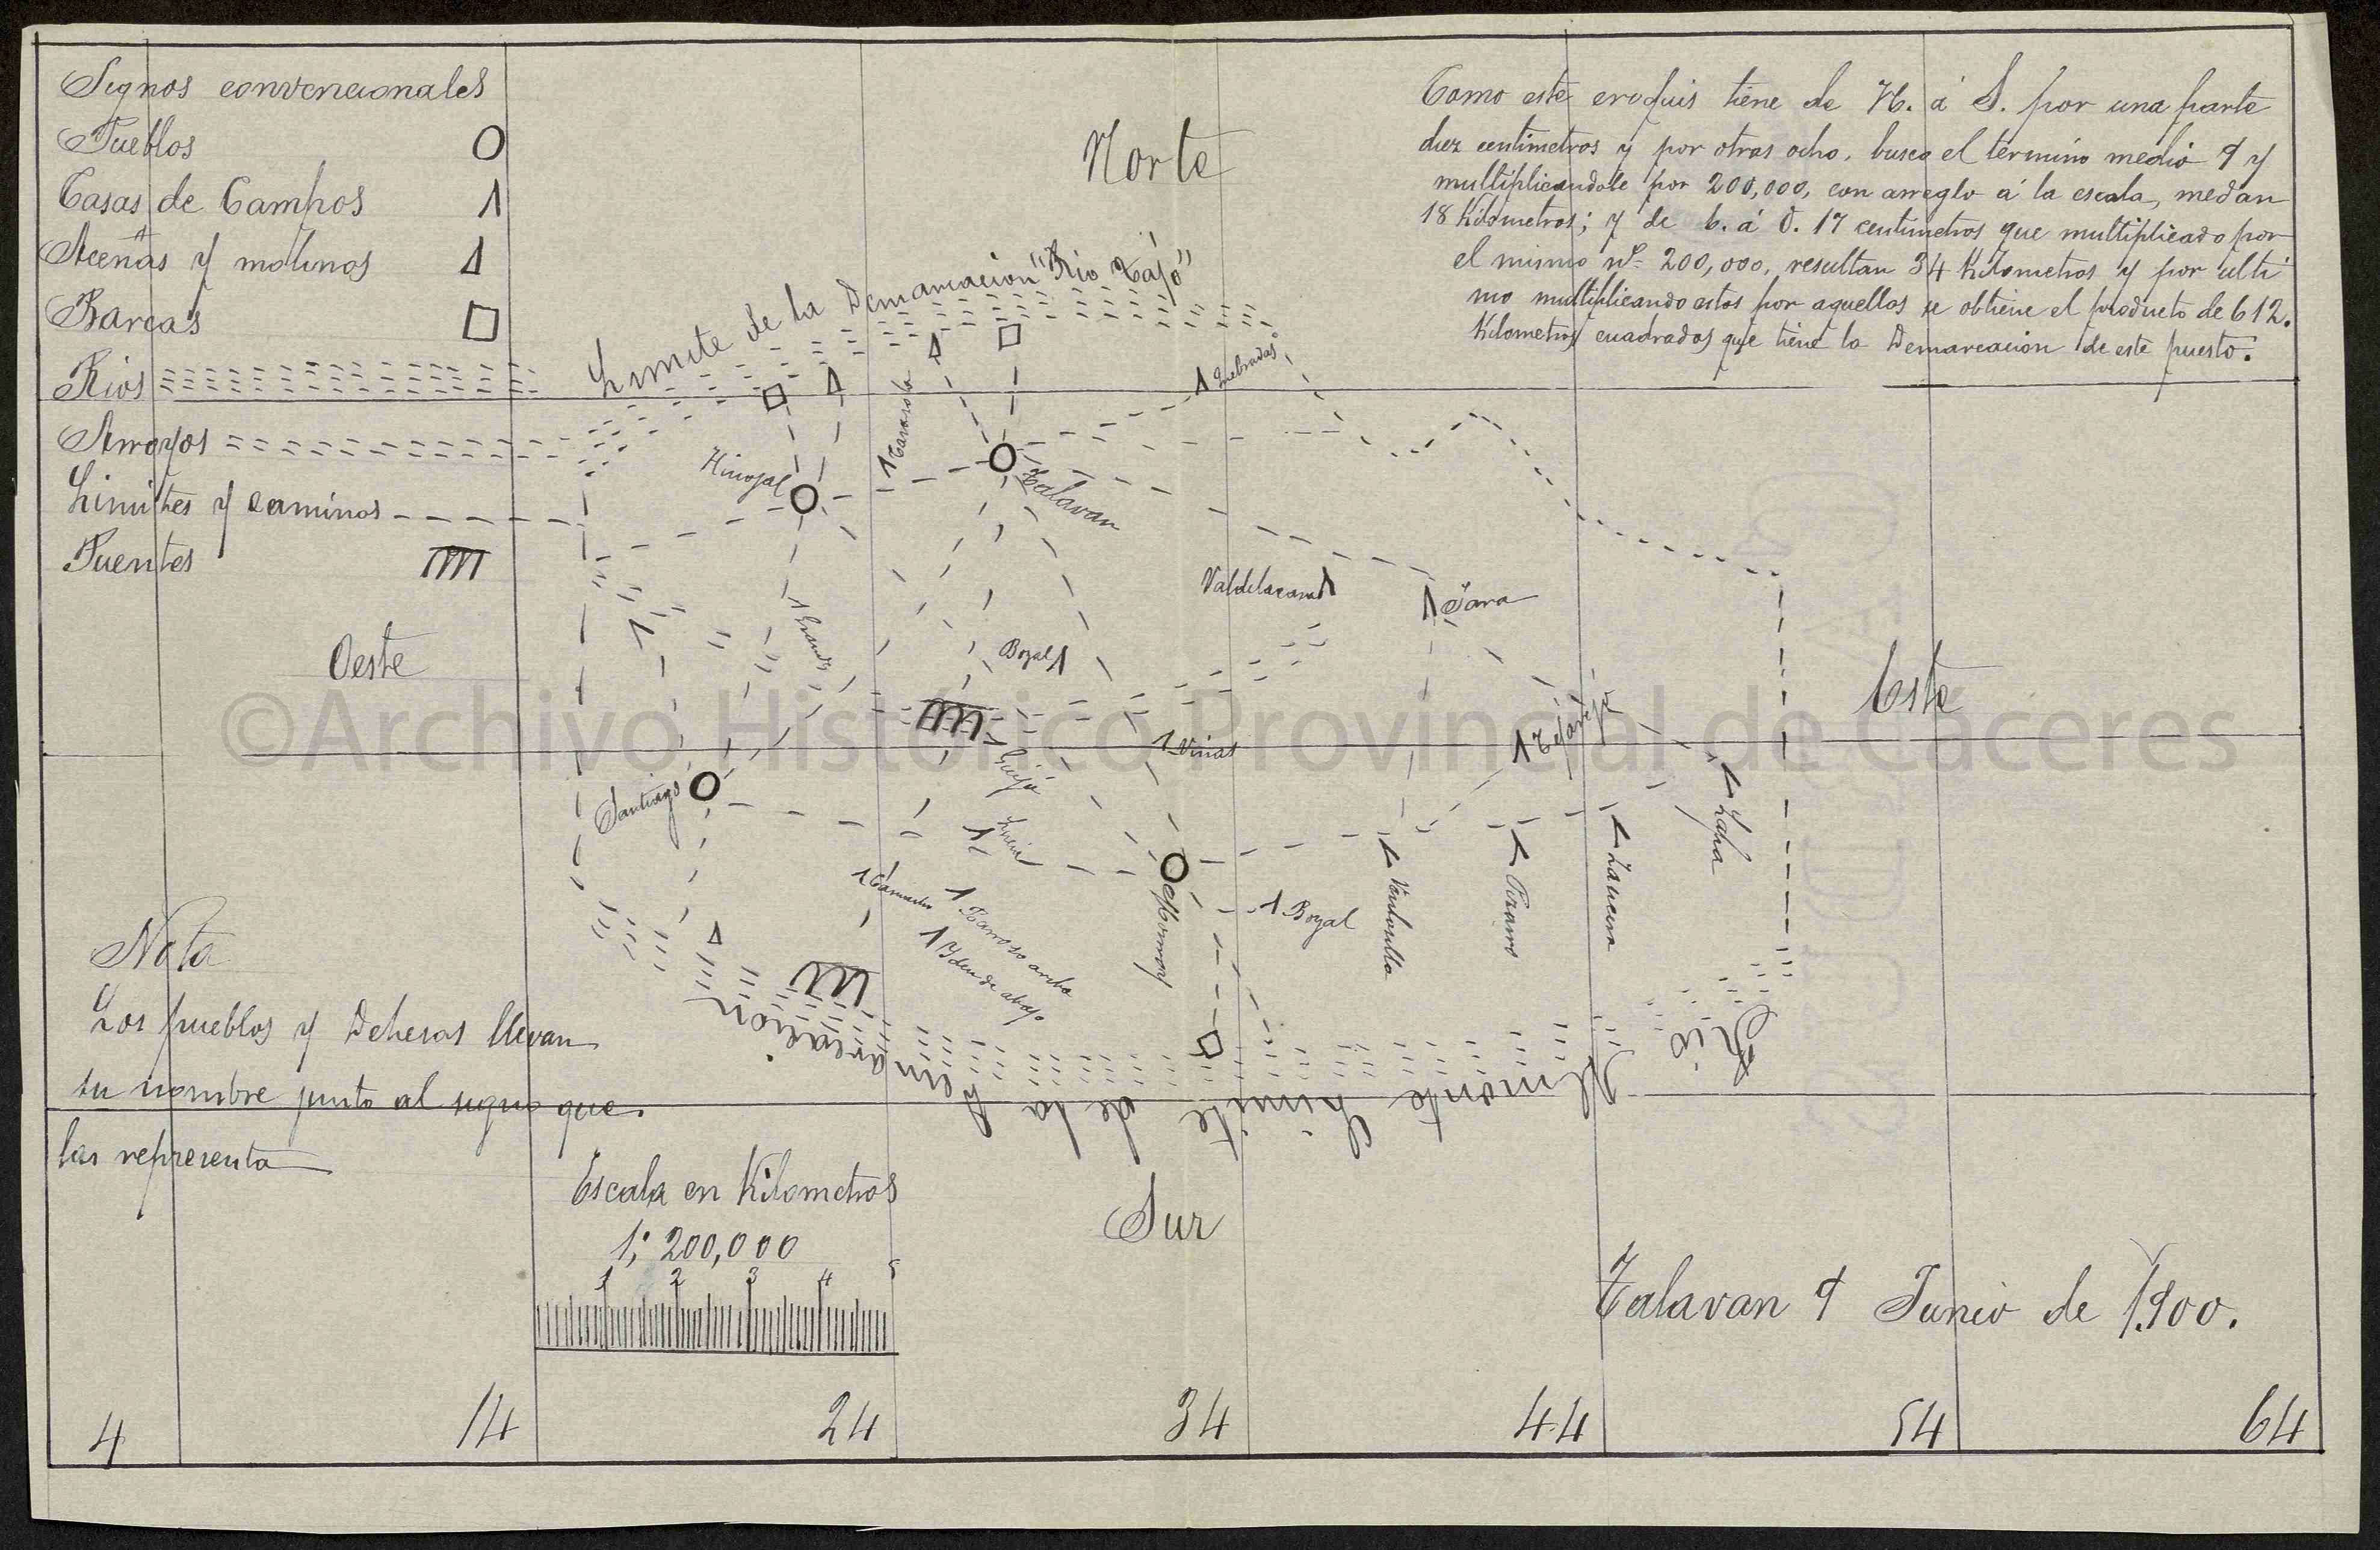 Signos convencionales
Pueblos
Casas de Campos
Aceñas y molinos
Barcas
Rios
Arroyos
Limites y caminos
Puentes
Norte
Como este croquis tiene de N. á S. por una parte
diez centimetros y por otras ocho, busco el término medio 9 y
multiplicandole por 200,000, con arreglo á la escala, me dan
18 Kilometros; y de E. á O. 17 centimetros que multiplicado por
el mismo nº 200,000, resultan 34 Kilometros y por ulti
mo multiplicando estos por aquellos se obtiene el producto de 612.
Kilometros cuadrados que tiene la Demarcacion de este puesto.
Limite de la Demarcacion "Rio Tajo"
Quebradas
Hinojal
Talavan
Valdelacasa
Jara
Bozal
Oeste
Este
©Archivo Histórico Provincial de Cáceres
Viñas
Guijo
Santiago
Zafra
Monroy
Bozal
Ventosilla
Pizarro
Barroso arriba
Yden de abajo
Rio
Almonte Limite de la Demarcacion.
Nota
Los pueblos y Dehesas llevan
su nombre junto al signo que.
las representa
Escala en Kilometros
1: 200,000
1 2 3 4 5
Sur
Talavan 9 Junio de 1.900.
4 14 24 34 44 54 64